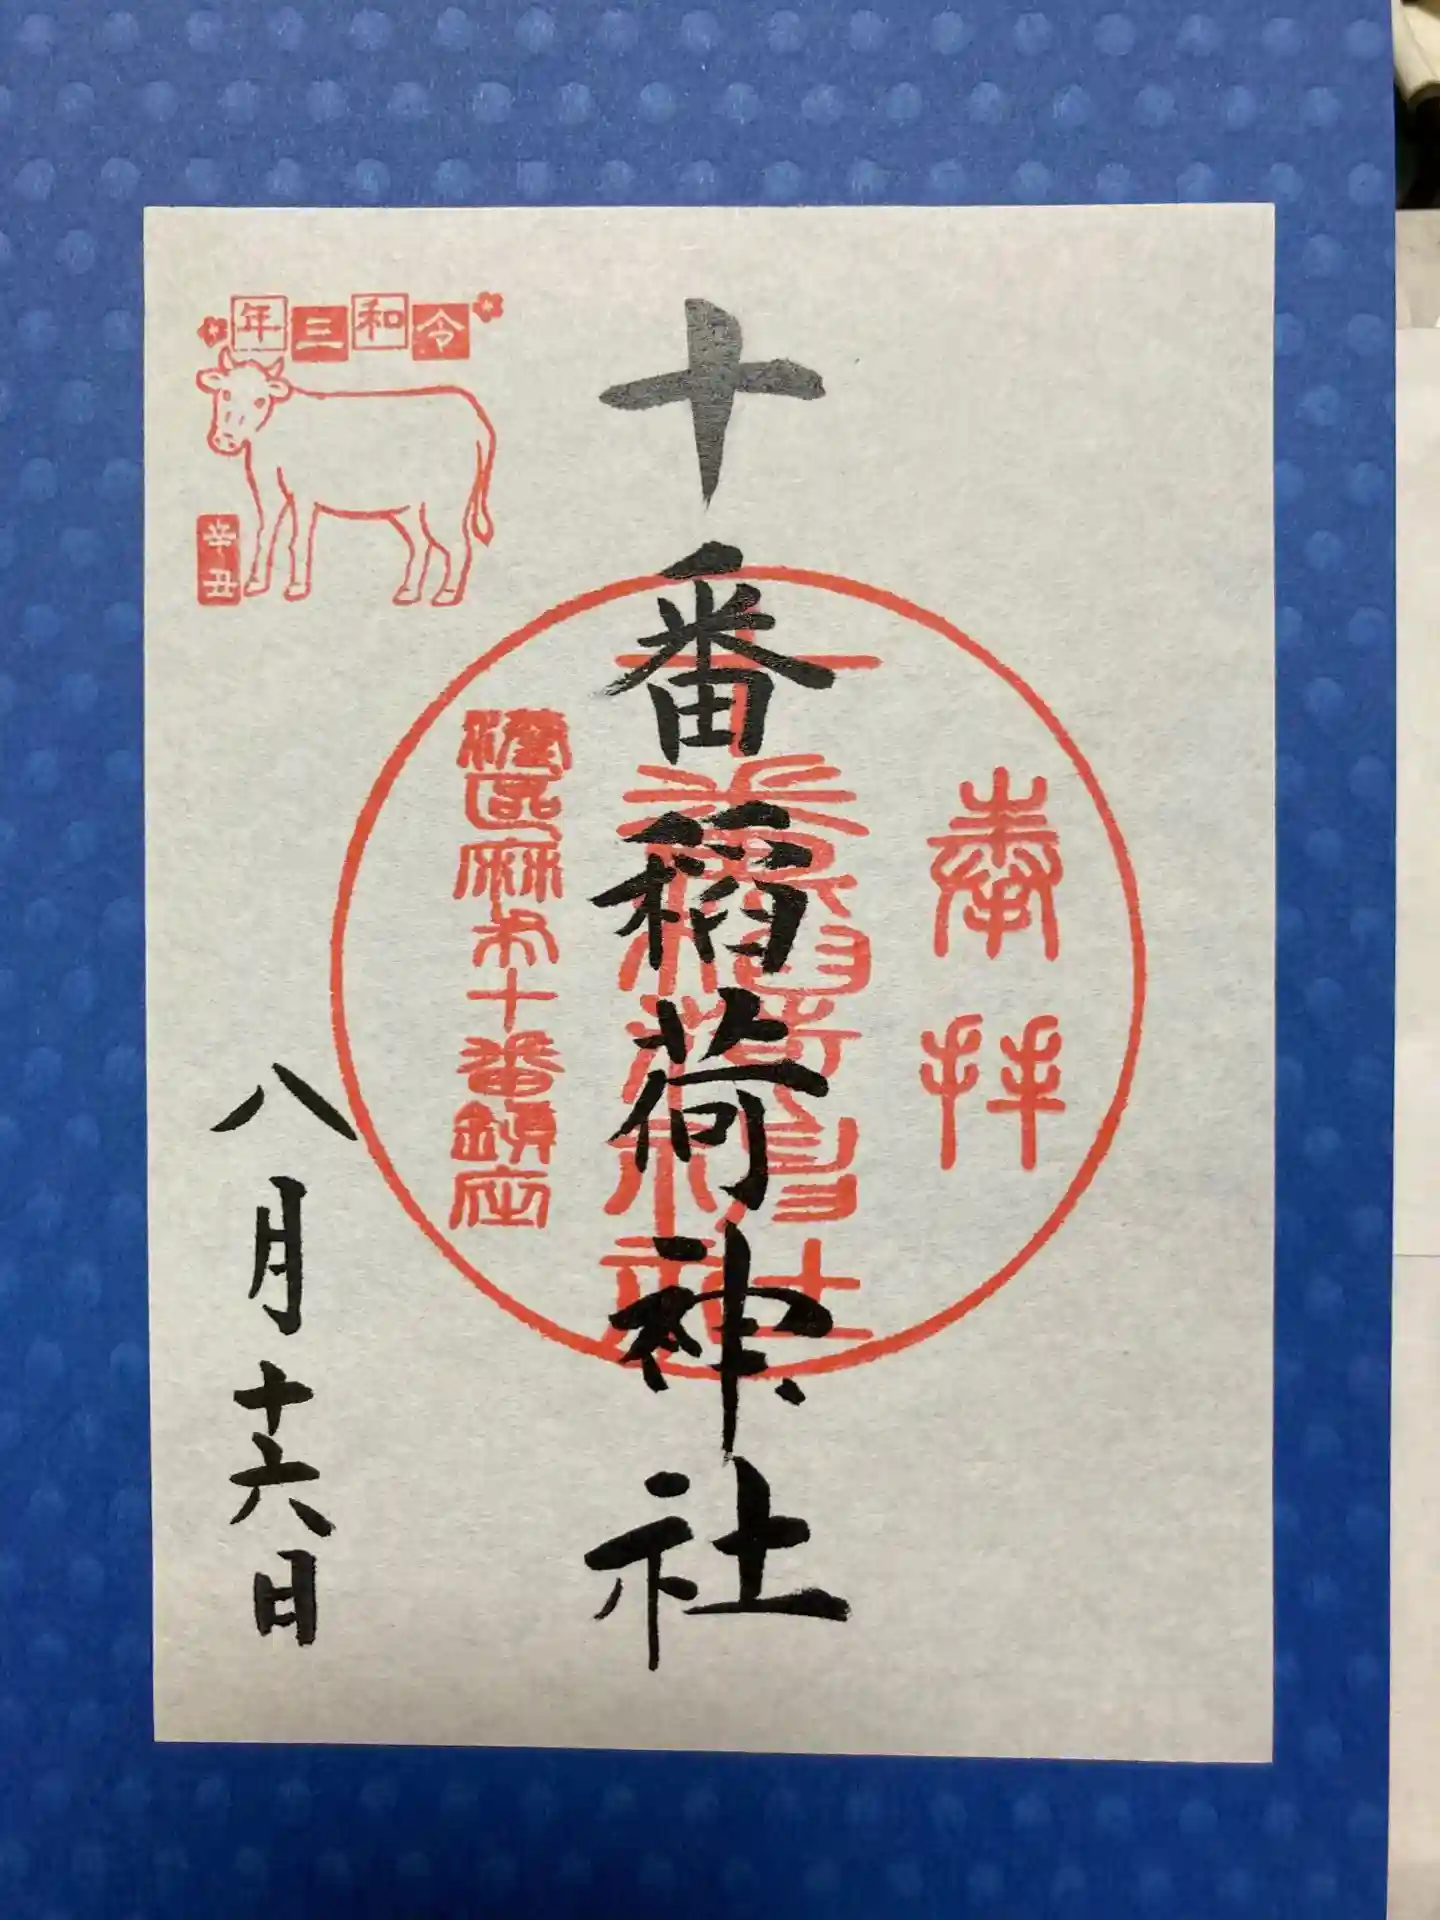 奉拝
十番稲荷神社
十番稲荷神社
港区麻布十番鎮座
令和三年
辛丑
八月十六日